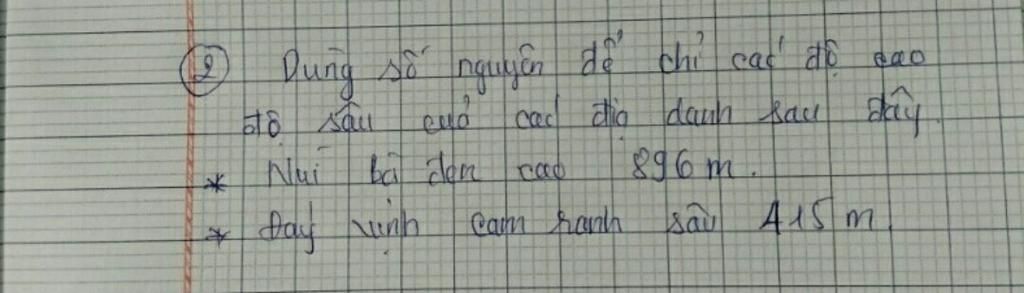 ② Dùng số nguyên để chỉ các độ cao
độ sâu của các địa danh sau đây.
* Núi bà đen cao 896 m.
* Đáy vịnh cam ranh sâu 415 m